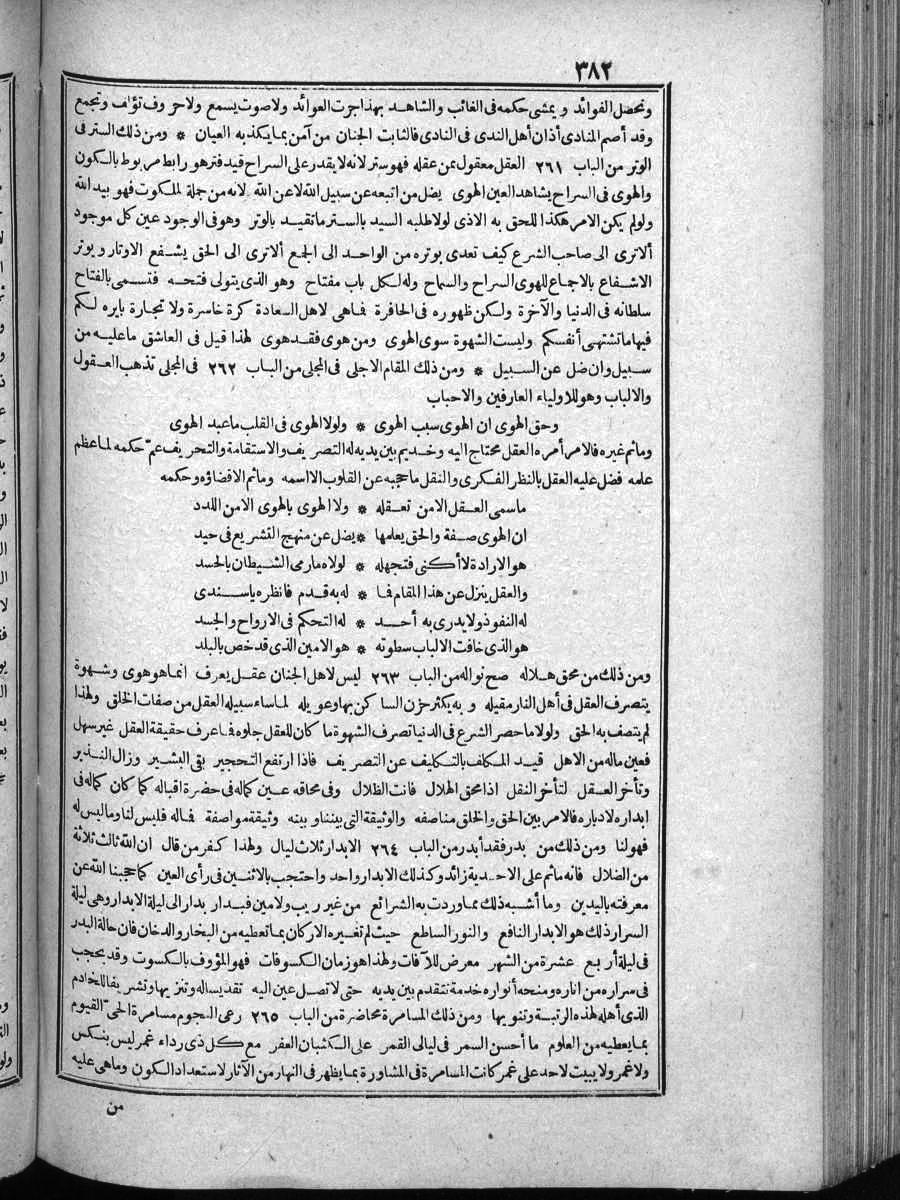 ٣٨٢
وتحصل الفوائد ويمشى حكمه فى الغائب والشاهد بهذا جرت العوائد ولا صوت يسمع ولا حروف تؤلف وتجمع
وقد أصم المنادى أذان أهل الندى فى النادى فالثابت الجنان من آمن بما يكذبه العيان * ومن ذلك الستر فى
الوتر من الباب ٢٦١ العقل معقول بمن عقله فهو ستر لانه لا يقدر على السراح قيد فترهو رابط مربوط بالكون
والهوى فى السراح يشاهد العين الهوى يضل من اتبعه عن سبيل الله لا عن الله لانه من جملة لملكوت فهو بيد الله
ولولم يكن الامر هكذا للحق به الاذى لولا طلبه السيد بالستر ما تقيد بالوتر وهو فى الوجود عين كل موجود
ألا ترى الى صاحب الشرع كيف تعدى بوتره من الواحد الى الجمع ألا ترى الى الحق يشفع الاوتار ويوتر
الاشفاع بالاجماع للهوى السراح والسماح وله لكل باب مفتاح وهو الذى يتولى فتحه فتسمى بالفتاح
سلطانه فى الدنيا والآخرة ولكن ظهوره فى الحافرة فما هى لاهل السعادة كرة خاسرة ولا تجارة بايره لكم
فيها ما تشتهى أنفسكم وليست الشهوة سوى الهوى ومن هوى فقد هوى لهذا قيل فى العاشق ما عليه من
سبيل وان ضل عن السبيل * ومن ذلك المقام الاجلى فى المجلى من الباب ٢٦٢ فى المجلى تذهب العقول
والالباب وهو للاولياء العارفين والاحباب
وحق الهوى ان الهوى سبب الهوى * ولولا الهوى فى القلب ما عبد الهوى
وماثم غيره فالامر أمره العقل محتاج اليه وخديم بين يديه له التصريف والاستقامة والتحريف عمّ حكمه لما عظم
علمه فضل عليه العقل بالنظر الفكرى والنقل ما حجبه عن القلوب الا اسمه وماثم الا قضاؤه وحكمه
ما سمى العقل الا من تعقله * ولا الهوى بالهوى الا من اللدد
ان الهوى صفة والحق يعلمها * يضل عن منهج التشريع فى حيد
هو الارادة لا أكنى فتجهله * لولاه ما رمى الشيطان بالحسد
والعقل ينزل عن هذا المقام فما * له به قدم فانظره يا سندى
له النفوذ ولا يدرى به أحد * له التحكم فى الارواح والجسد
هو الذى خافت الالباب سطوته * هو الامين الذى قد خص بالبلد
ومن ذلك من محق هلاله صح نواله من الباب ٢٦٣ ليس لاهل الجنان عقل يعرف انما هو هوى وشهوة
يتصرف العقل فى أهل النار مقيله و به يكثر حزن الساكن بها وعويله لما ساء سبيله العقل من صفات الخلق ولهذا
لم يتصف به الحق ولولا ما حصر الشرع فى الدنيا تصرف الشهوة ما كان للعقل جلوه فما عرف حقيقة العقل غير سهل
فعين ماله من الاهل قيد المكلف بالتكليف عن التصريف فاذا ارتفع التحجير بقى البشير وزال النذير
وتأخر العقل لتأخر النقل اذا محق الهلال فانت الظلال وفى محاقه عين كماله فى حضرة اقباله كما كان كماله فى
ابداره لادباره فالامر بين الحق والخلق مناصفه والوثيقة التى بيننا وبينه وثيقة مواصفة فماله فليس لنا وماليس له
فهو لنا ومن ذلك من بدر فقد أبدر من الباب ٢٦٤ الابدار ثلاث ليال ولهذا كفر من قال ان الله ثالث ثلاثة
من الضلال فانه ماثم على الاحدية زائد وكذلك الابدار واحد واحتجب بالاثنين فى رأى العين كما حجبنا الله عن
معرفته باليدين وما أشبه ذلك مما وردت به الشرائع من غير ريب ولا مين فبدار بدار الى ليلة الابدار وهى ليلة
السرار ذلك هو الابدار النافع والنور الساطع حيث لم تغيره الاركان بما تعطيه من البخار والدخان فان حالة البدر
فى ليلة أربع عشرة من الشهر معرض للآفات ولهذا هو زمان الكسوفات فهو المؤوف بالكسوت وقد يحجب
فى سراره من اناره ومنحه أنواره خدمة تتقدم بين يديه حتى لا تصل عين اليه تقديسا له وتنزيها وتشريفا للخادم
الذى أهله لهذه الرتبة وتنويها ومن ذلك المسامرة محاضرة من الباب ٢٦٥ رعى النجوم مسامرة الحىّ القيوم
بما يعطيه من العلوم ما أحسن السمر فى ليالى القمر على الكثبان العفر مع كل ذى رداء غمر ليس بنكس
ولا غمر ولا يبيت لاحد على غمر كانت المسامرة فى المشاورة بما يظهر فى النهار من الآثار لاستعداد الكون وما هى عليه
من